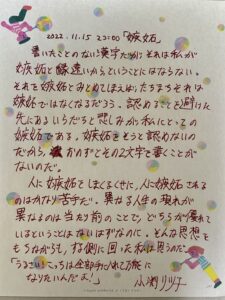 2022.11.15 23:00「嫉妬」
書いたことのない漢字だが、それは私が
嫉妬と縁遠いからということにはならない。
それを嫉妬とみとめてしまえば、たちまちそれは
嫉妬ではなくなるだろう。認めることを避けた
先にあるいらだちと悲しみが私にとっての
嫉妬である。嫉妬をそうと認めないの
だから、わざとその2文字で書くことが
ないのだ。
人に嫉妬をしまくるくせに、人に嫉妬される
のはかなり苦手だ。異なる人生の現れが
異なるのは当たり前のことで、どちらが優れて
いるということはないはずなのに。そんな思想を
もちながらも、する側に回った私は思うのだ。
「うるさい!こっちは全部手に入れて万能に
なりたいんだよ!」